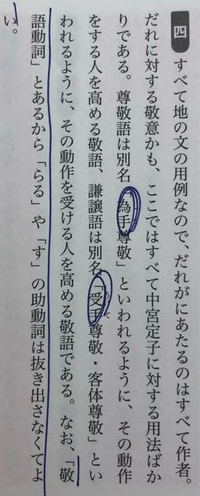 四 すべて地の文の用例なので、だれがにあたるのはすべて作者。
だれに対する敬意かも、ここではすべて中宮定子に対する用法ばか
りである。尊敬語は別名「為手尊敬」といわれるように、その動作
をする人を高める敬語、謙譲語は別名「受手尊敬・客体尊敬」とい
われるように、その動作を受ける人を高める敬語である。なお、「敬
語動詞」とあるから「らる」や「す」の助動詞は抜き出さなくてよ
い。